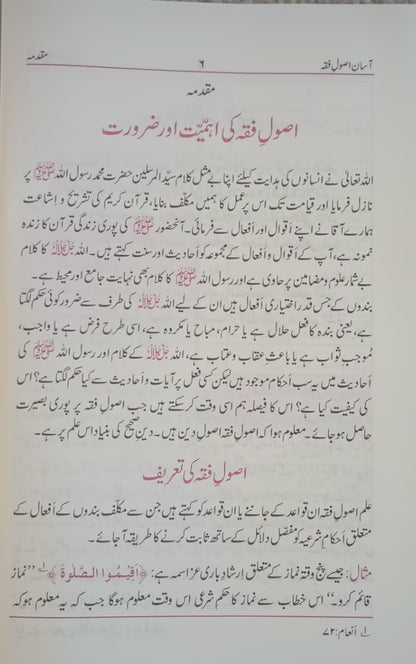 آسان اصولِ فقہ ۶ مقدمہ
مقدمہ
اصولِ فقہ کی اہمیّت اور ضرورت
اللہ تعالیٰ نے انسانوں کی ہدایت کیلئے اپنا بے مثل کلام سیّد المرسلین حضرت محمد رسول اللہ ﷺ پر
نازل فرمایا اور قیامت تک اس پر عمل کا ہمیں مکلّف بنایا، قرآن کریم کی تشریح و اِشاعت
ہمارے آقا نے اپنے اَقوال اور اَفعال سے فرمائی۔ آنحضور ﷺ کی پوری زندگی قرآن کا زندہ
نمونہ ہے، آپ کے اَقوال و اَفعال کے مجموعہ کو اَحادیث اور سنت کہتے ہیں۔ اللہ جَلَّ جَلَالُہٗ کا کلام
بے شمار علوم و مضامین پر حاوی ہے اور رسول اللہ ﷺ کا کلام بھی نہایت جامع اور محیط ہے۔
بندوں کے جس قدر اِختیاری اَفعال ہیں ان کے لیے اللہ جَلَّ جَلَالُہٗ کی طرف سے ضرور کوئی حکم لگتا
ہے، یعنی بندہ کا فعل حلال ہے یا حرام، مباح یا مکروہ ہے، اسی طرح فرض ہے یا واجب،
مُوجبِ ثواب ہے یا باعثِ عقاب و عتاب ہے، اللہ جَلَّ جَلَالُہٗ کے کلام اور رسول اللہ ﷺ کی
اَحادیث میں یہ سب اَحکام موجود ہیں لیکن کسی فعل پر آیات و اَحادیث سے کیا حکم لگتا ہے؟ اس
کی کیفیت کیا ہے؟ اس کا فیصلہ ہم اسی وقت کرسکتے ہیں جب اصولِ فقہ پر پوری بصیرت
حاصل ہو جائے۔ معلوم ہوا کہ اصولِ فقہ اصولِ دین ہیں۔ دینِ صحیح کی بنیاد اس علم پر ہے۔
اصولِ فقہ کی تعریف
علم اصولِ فقہ اِن قواعد کے جاننے یا ان قواعد کو کہتے ہیں جن سے مکلّف بندوں کے اَفعال کے
متعلق اَحکامِ شرعیہ کو مفصّل دلائل کے ساتھ ثابت کرنے کا طریقہ آجائے۔
مثال: جیسے پنج وقتہ نماز کے متعلق اِرشادِ باری عزّاسمہ ہے: ﴿اَقِیْمُوا الصَّلٰوةَ﴾ لے ”نماز
قائم کرو۔“ اس خطاب سے نماز کا حکم شرعی اس وقت معلوم ہوگا جب کہ یہ معلوم ہو کہ
لے انعام: ۷۲